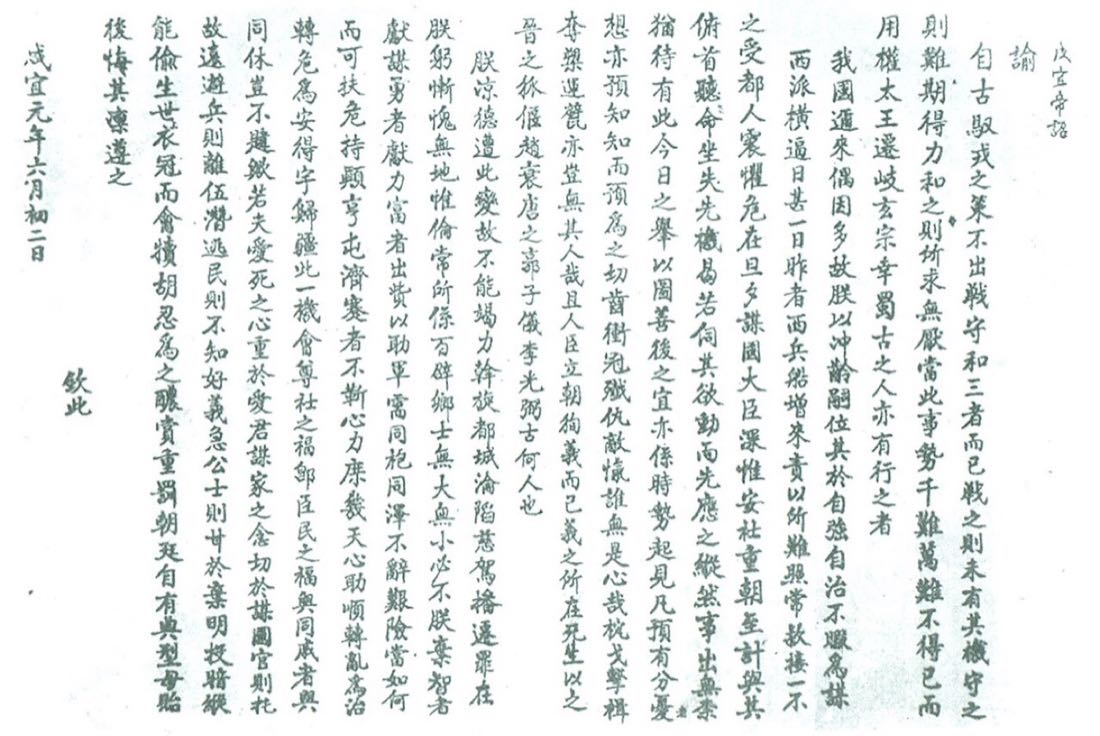 咸宜帝詔
諭
自古馭戎之策不出戰守和三者而已戰之則未有其機守之
則難期得力和之則所求無厭當此事勢千難萬難不得已而
用權太王遷岐玄宗幸蜀古之人亦有行之者
我國邇來偶因多故朕以冲齡嗣位其於自強自治不暇為謀
西派橫逼日甚一日昨者西兵船增來責以所難照常款接一不
之受都人震懼危在旦夕謀國大臣深惟安社重朝至計與其
俯首聽命坐失先機曷若伺其欲動而先應之縱然事出無柰
猶待有此今日之舉以圖善後之宜亦係時勢起見凡預有分憂
想亦預知知而預為之切齒衝冠殲仇敵愾誰無是心哉枕戈擊楫
奪槊運甓亦豈無其人哉且人臣立朝狥義而已義之所在死生以之
晉之狐偃趙衰唐之郭子儀李光弼古何人也
朕凉德遭此變故不能竭力幹旋都城淪陷慈駕播遷罪在
朕躬慚愧無地惟倫常所係百辟鄉士無大無小必不朕棄智者
獻謀勇者獻力富者出貲以助軍需同袍同澤不辭艱險當如何
而可扶危持顛亨屯濟蹇者不靳心力庶幾天心助順轉亂為治
轉危為安得字歸疆此一機會尊社之福鄉臣民之福與同戚者與
同休豈不韙歟若夫愛死之心重於愛君謀家之念切於謀國官則托
故遠遊兵則離伍潛逃民則不知好義急公士則甘於棄明投暗縱
能偷生世衣冠而禽犢胡忍為之醲賞重罰朝廷自有典型毋貽
後悔其凜遵之
欽此
咸宜元年六月初二日